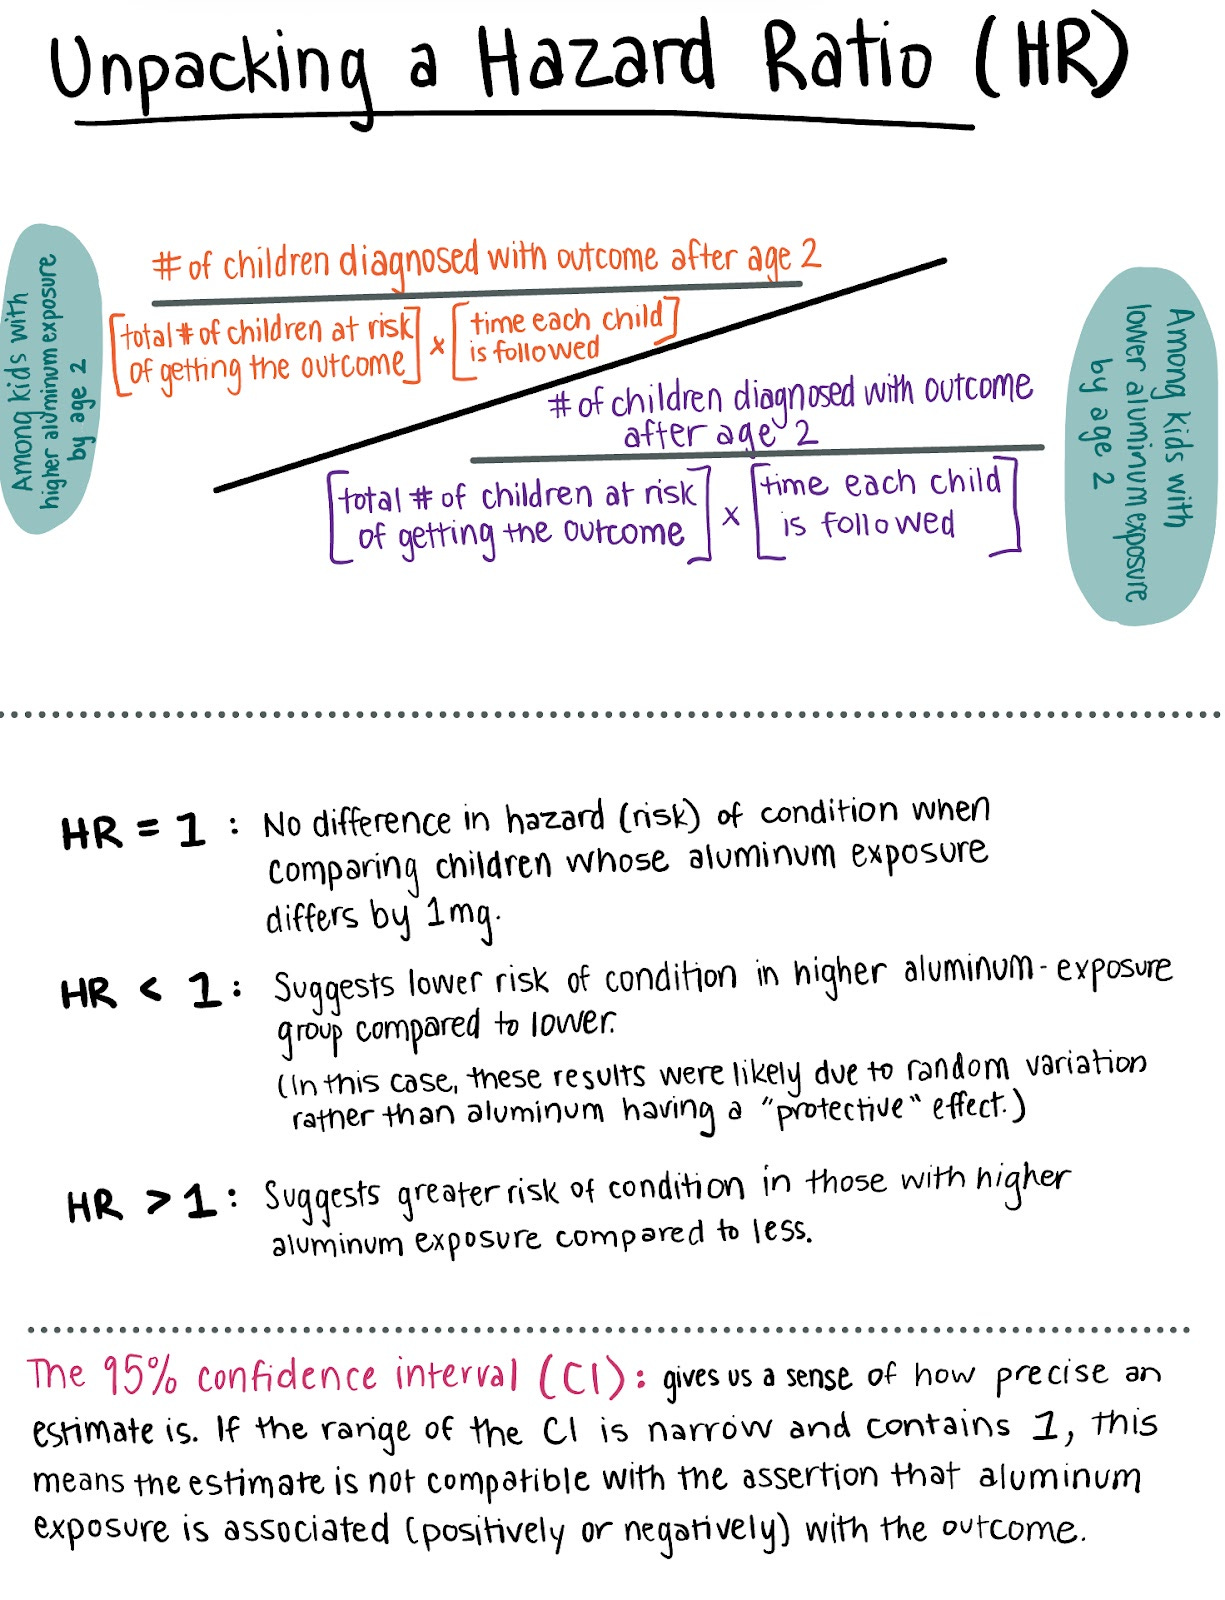 Unpacking a Hazard Ratio (HR)
Among kids with
higher aluminum exposure
by age 2
# of children diagnosed with outcome after age 2
[total # of children at risk
of getting the outcome] x [time each child
is followed]
# of children diagnosed with outcome
after age 2
[total # of children at risk
of getting the outcome] x [time each child
is followed]
Among kids with
lower aluminum exposure
by age 2
HR = 1 : No difference in hazard (risk) of condition when
comparing children whose aluminum exposure
differs by 1mg.
HR < 1 : Suggests lower risk of condition in higher aluminum-exposure
group compared to lower.
(In this case, these results were likely due to random variation
rather than aluminum having a "protective" effect.)
HR > 1 : Suggests greater risk of condition in those with higher
aluminum exposure compared to less.
The 95% confidence interval (CI) : gives us a sense of how precise an
estimate is. If the range of the CI is narrow and contains 1, this
means the estimate is not compatible with the assertion that aluminum
exposure is associated (positively or negatively) with the outcome.